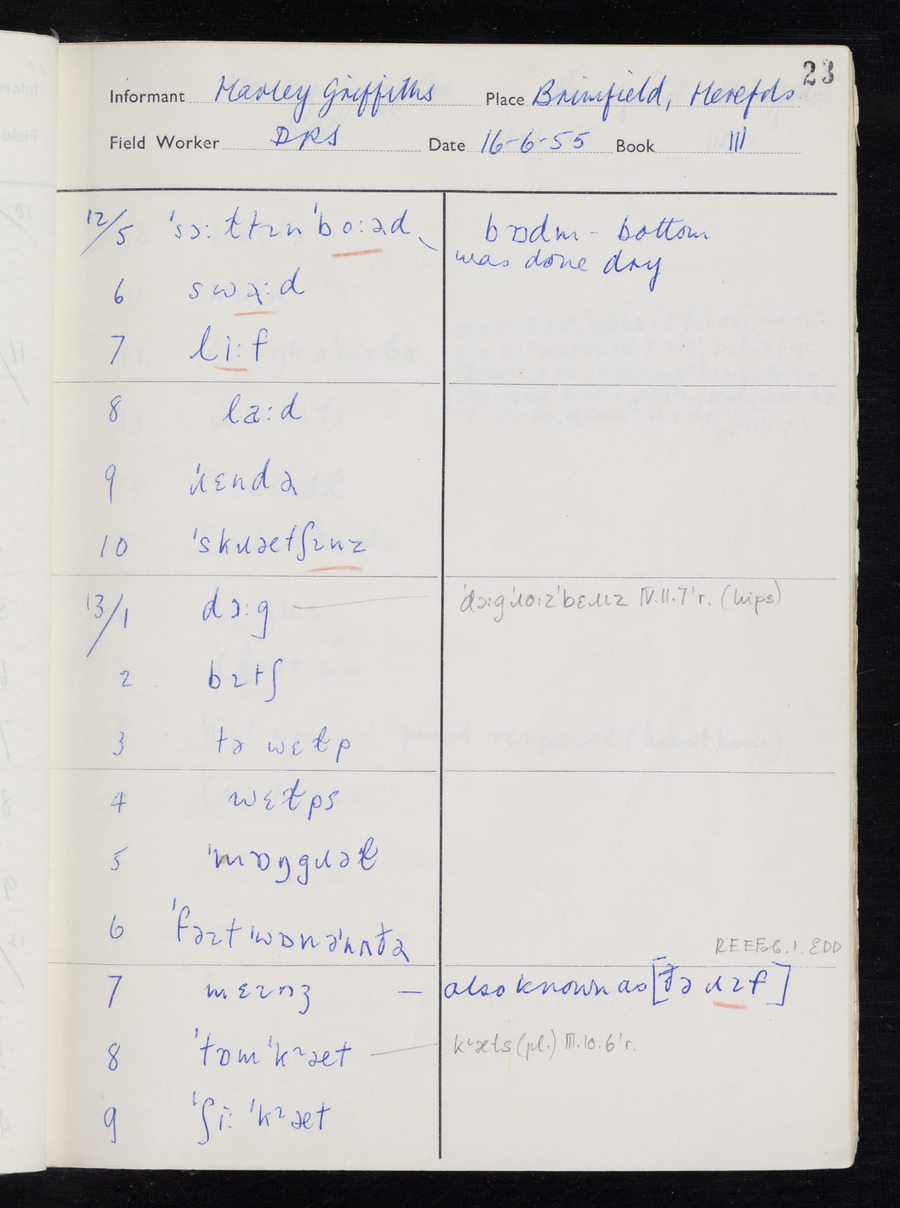 23
Informant Harley Griffiths Place Brimfield, Herefds.
Field Worker DRS Date 16-6-55 Book III
12/5 ˈsɔ:ɫtɪnˈbo:əd bɒdm - bottom
was done dry
6 swəː d
7 liːf
8 laːd
9 ˈɹɛndə
10 ˈskɹætʃɪnz
13/1 dɔːg ˈdɔːgˈɹoːzˈbɛɹɪz IV.11.7'r. (hips)
2 bɪtʃ
3 tə wɛɫp
4 wɛɫps
5 ˈmɒŋgɹəɫ
6 ˈfəɪtˈwɒnəˈnʌðə REEFS 6.1. EDD
7 mɛɪnʒ — also known as [ðə ɹɪf]
8 ˈtɒmˈkᶦæt kᶦæts (pl.) III.10.6'r.
9 ˈʃiːˈkᶦæt